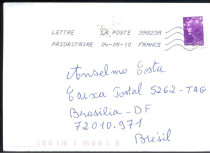 LETTRE LA POSTE 39829A
PRIORITAIRE 04-05-10 FRANCE
Anselmo Costa
Caixa Postal 5262-TAG
Brasília-DF
72010.971
Brésil